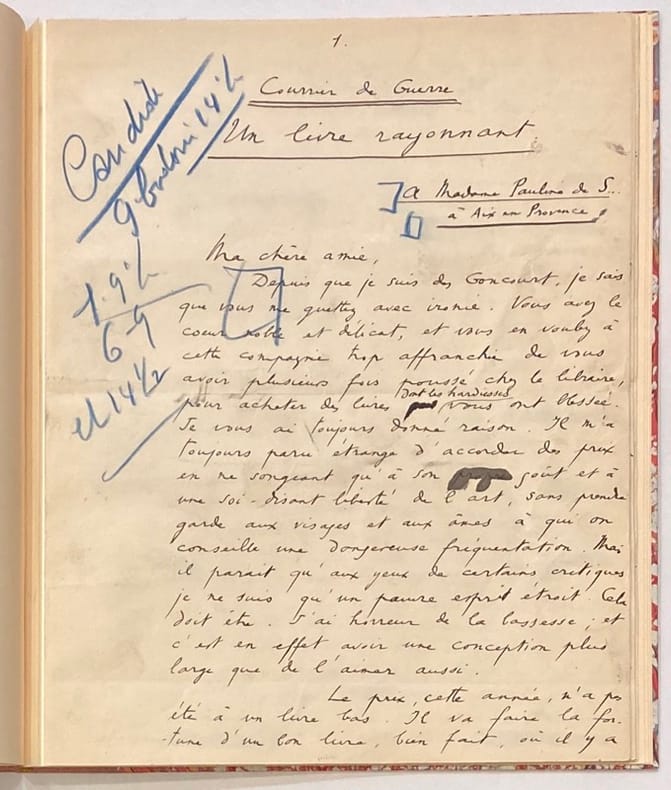 1.
Courrier de Guerre
Un livre rayonnant.
A Madame Pauline de S...
à Aix en Provence.
Candide
9 14 ½
1. 9 ½
6 - 9
et 14 ½
Ma chère amie,
Depuis que je suis des Goncourt, je sais
que vous me guettez avec ironie. Vous avez le
coeur noble et délicat, et vous en voulez à
cette compagnie trop affranchie de vous
avoir plusieurs fois poussé chez le libraire,
pour acheter des livres dont les hardiesses vous ont blessée.
Je vous ai toujours donné raison. Il m'a
toujours paru étrange d'accorder des prix
en ne songeant qu'à son goût et à
une soi-disant liberté de l'art, sans prendre
garde aux visages et aux âmes à qui on
conseille une dangereuse fréquentation. Mais
il paraît qu'aux yeux de certains critiques
je ne suis qu'un pauvre esprit étroit. Cela
doit être. J'ai horreur de la bassesse ; et
c'est en effet avoir une conception plus
large que de l'aimer aussi.
Le prix, cette année, n'a pas
été à un livre bas. Il va faire la for-
tune d'un bon livre, bien fait, où il y a